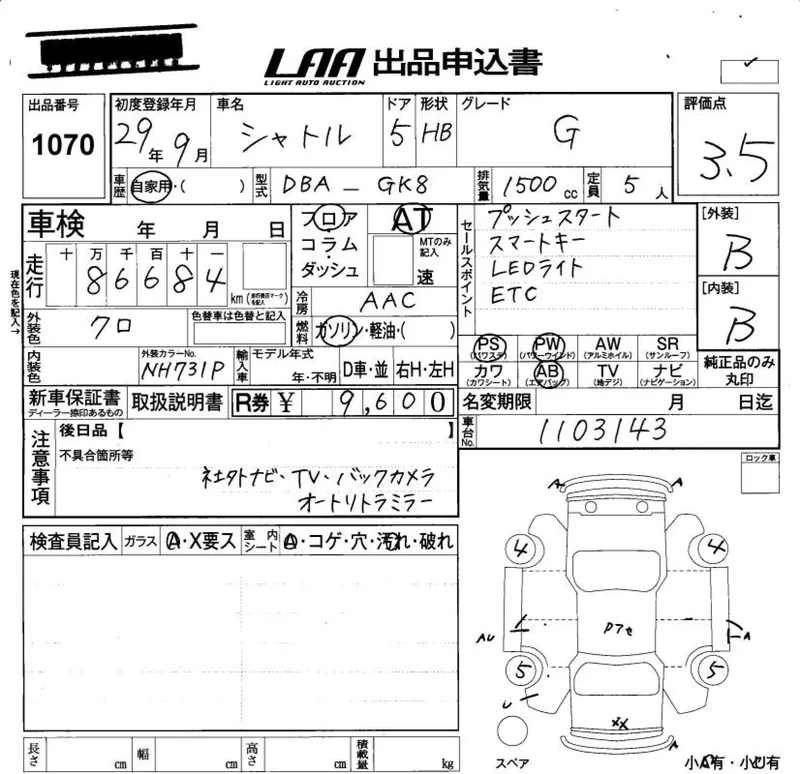 LAA 出品申込書
LIGHT AUTO AUCTION
出品番号 初度登録年月 車名 ドア 形状 グレード 評価点
1070 29年 9月 シャトル 5 HB G 3.5
車歴 自家用・( ) 型式 DBA - GK8 排気量 1500 cc 定員 5 人
車検 年 月 日 フロア・コラム・ダッシュ AT MTのみ記入 速
セールスポイント
プッシュスタート
スマートキー
LEDライト
ETC
[外装]
B
[内装]
B
走行 十 万 千 百 十 一
8 6 6 8 4 km (走行表示マークを記入)
現在色を記入→
冷房 AAC
外装色 クロ 色替車は色替と記入 燃料 ガソリン・軽油・( )
PS (パワステ) PW (パワーウインド) AW (アルミホイル) SR (サンルーフ)
カワ (カワシート) AB (エアバッグ) TV (地デジ) ナビ (ナビゲーション)
純正品のみ丸印
内装色 外装カラーNo. NH731P 輸入車 モデル年式 年・不明 D車・並 右H・左H
新車保証書 ディーラー捺印あるもの 取扱説明書 R券 ¥ 9,600 名変期限 月 日迄
車台No. 1103143
注意事項 後日品【 】
不具合箇所等
社外ナビ・TV・バックカメラ
オートリトラミラー
ロック車
検査員記入 ガラス A・X要ス 室内シート A・コゲ・穴・汚れ・破れ
A A
4 4
Pアセ
AU A
5 5
U
XX
A
スペア 小A有・小U有
長さ cm 幅 cm 高さ cm 積載量 kg